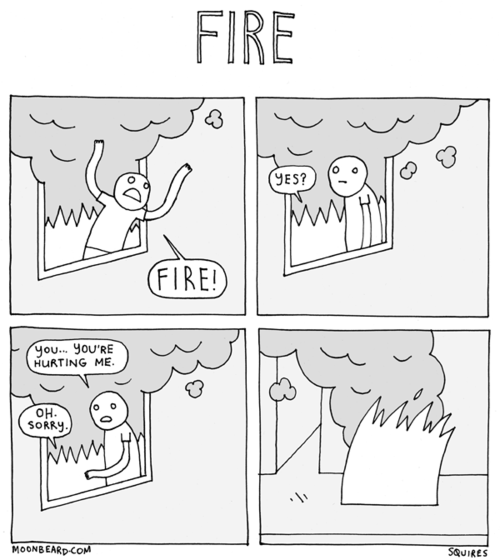 FIRE
FIRE!
YES?
YOU... YOU'RE
HURTING ME.
OH.
SORRY.
MOONBEARD.COM
SQUIRES